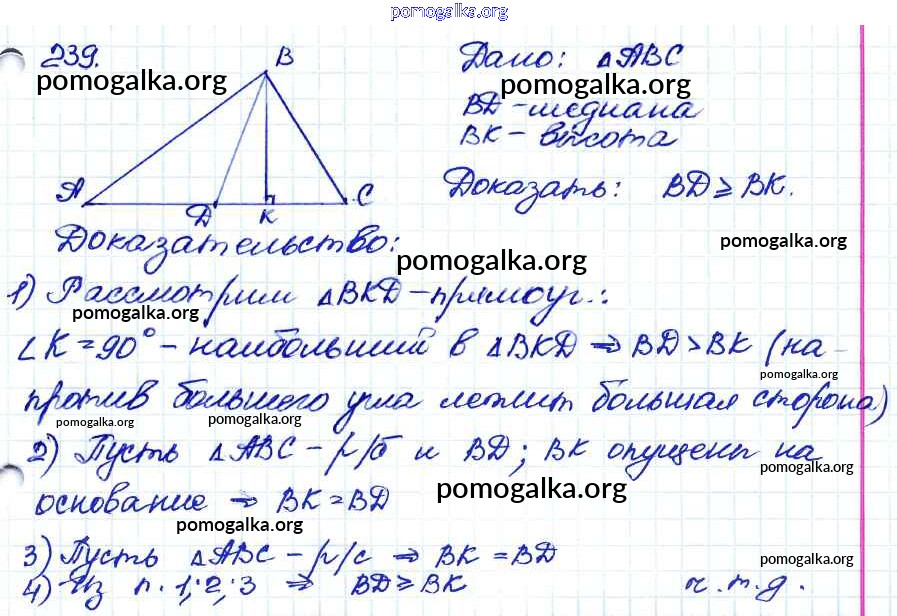 pomogalka.org
239.
pomogalka.org
B
A
D
K
C
Дано: △ABC
pomogalka.org
BD – медиана
BK – высота
Доказать: BD ⩾ BK.
pomogalka.org
Доказательство:
pomogalka.org
1) Рассмотрим △BKD – прямоуг.:
pomogalka.org
∠K = 90° – наибольший в △BKD ⇒ BD > BK (на-
pomogalka.org
против большего угла лежит большая сторона)
pomogalka.org
pomogalka.org
pomogalka.org
2) Пусть △ABC – р/б и BD; BK опущены на
pomogalka.org
основание ⇒ BK = BD
pomogalka.org
pomogalka.org
3) Пусть △ABC – р/с ⇒ BK = BD
pomogalka.org
4) Из п. 1; 2; 3 ⇒ BD ⩾ BK
ч.т.д.